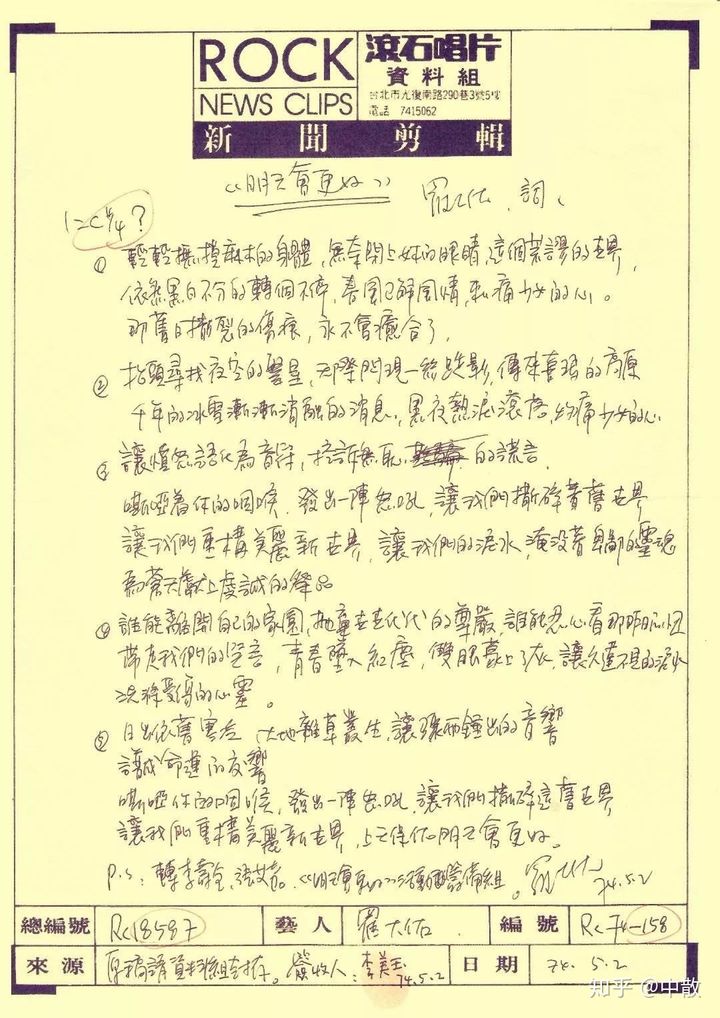 ROCK
NEWS CLIPS
滾石唱片
資料組
台北市光復南路290巷3號5樓
電話 7415062
新聞剪輯
《明天會更好》
羅大佑 詞、
1=C 4/4？
① 輕輕撫摸麻木的身體，無奈閉上妳的眼睛，這個荒謬的世界，
依然黑白不分的轉個不停，春風不解風情，刺痛少女的心。
那舊日撕裂的傷痕，永不會癒合了，
② 抬頭尋找夜空的雙星，天際閃現一絲跌影，傳來喜瑪的高原
千年的冰雪漸漸消融的消息，黑夜熱淚滾落，灼痛少女的心
③ 讓憤怒語化為音符，控訴無恥的謊言
嘶啞著你的咽喉，發出一陣怒吼，讓我們撕碎舊世界
讓我們重構美麗新世界，讓我們的淚水，淹没著卑鄙的靈魂
為蒼天獻上虔誠的祭品
④ 誰能離開自己的家園，抛棄世世代代的尊嚴，誰能忍心看那昨日
帶走我們的笑言，青春墜入紅塵，雙眼蒙上了灰，讓久違不見的淚水
洗滌受傷的心靈。
⑤ 日出依舊寒冷 大地雜草叢生，讓 鐘出的音響
譜成命運的反響
嘶啞你的咽喉，發出一陣怒吼，讓我們撕碎這舊世界
讓我們重構美麗新世界，上天保佑明天會更好。
P.S：轉李壽全、張艾嘉。《明天會更好》籌備組。羅大佑 74.5.2
總編號 Rc18587 藝人 羅大佑 編號 Rc 74-158
來源 原稿請資料組查存。簽收人：李美玉 74.5.2 日期 74. 5. 2
知乎 @中散